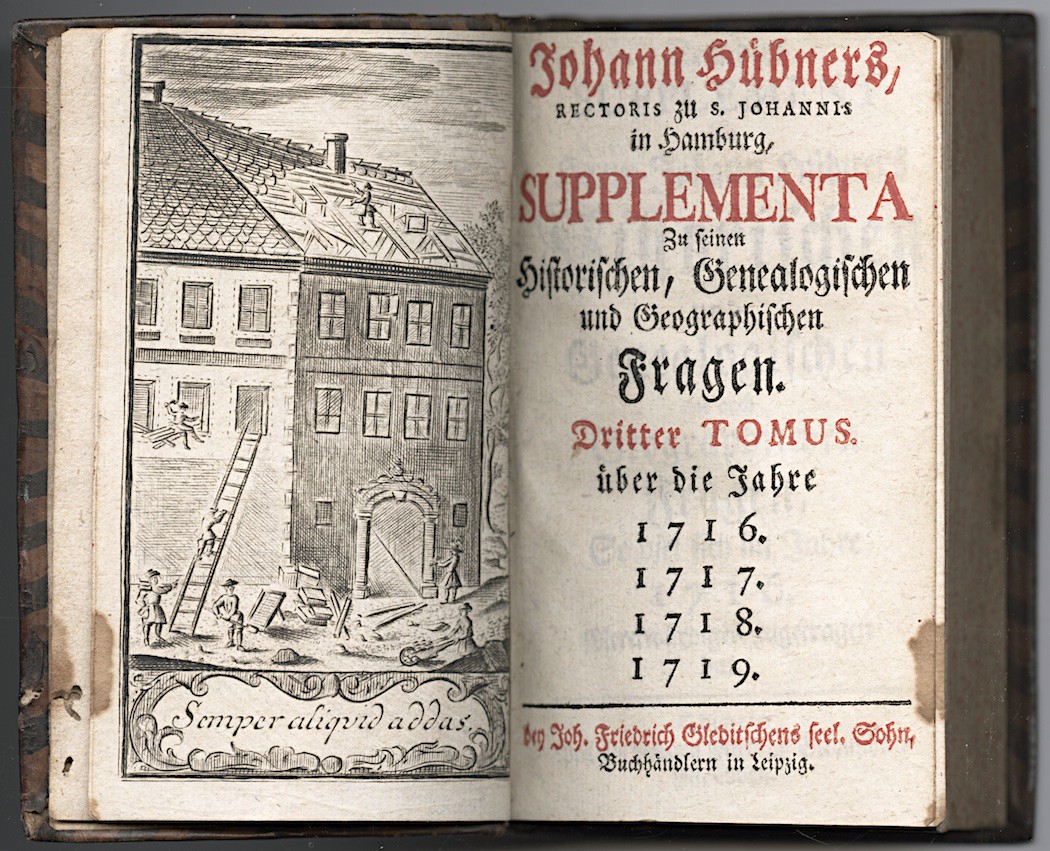 Semper aliqvid addas.
Johann Hübners,
RECTORIS zu S. JOHANNIS
in Hamburg,
SUPPLEMENTA
Zu seinen
Historischen, Genealogischen
und Geographischen
Fragen.
Dritter TOMUS.
über die Jahre
1716.
1717.
1718.
1719.
bey Joh. Friedrich Gleditschens seel. Sohn,
Buchhändlern in Leipzig.